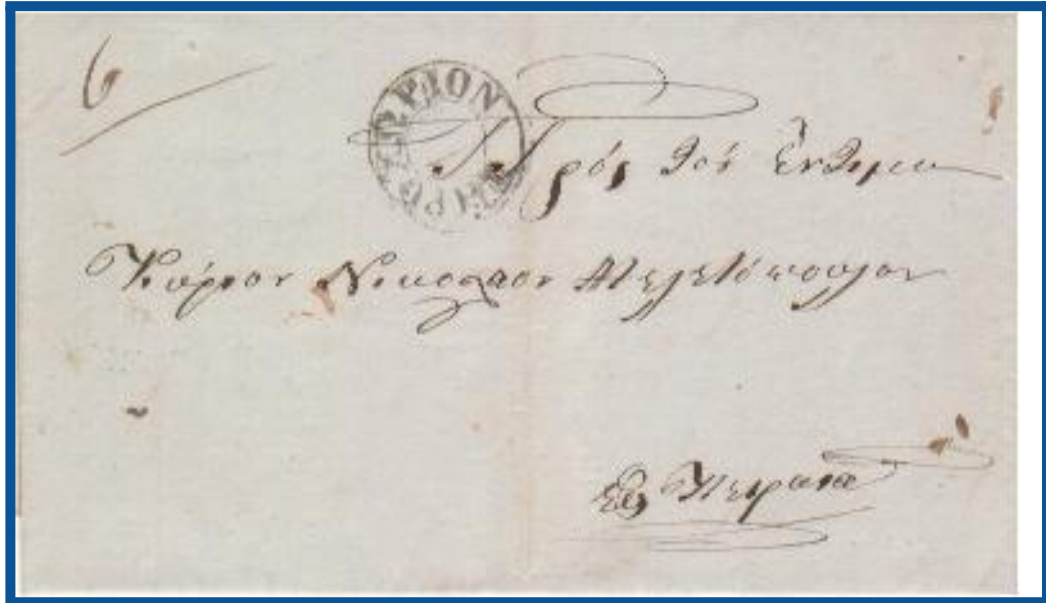 6
Πρός τόν ἔντιμον
Κύριον Νικόλαον Μελετόπουλον
Εἰς Πειραιᾶ